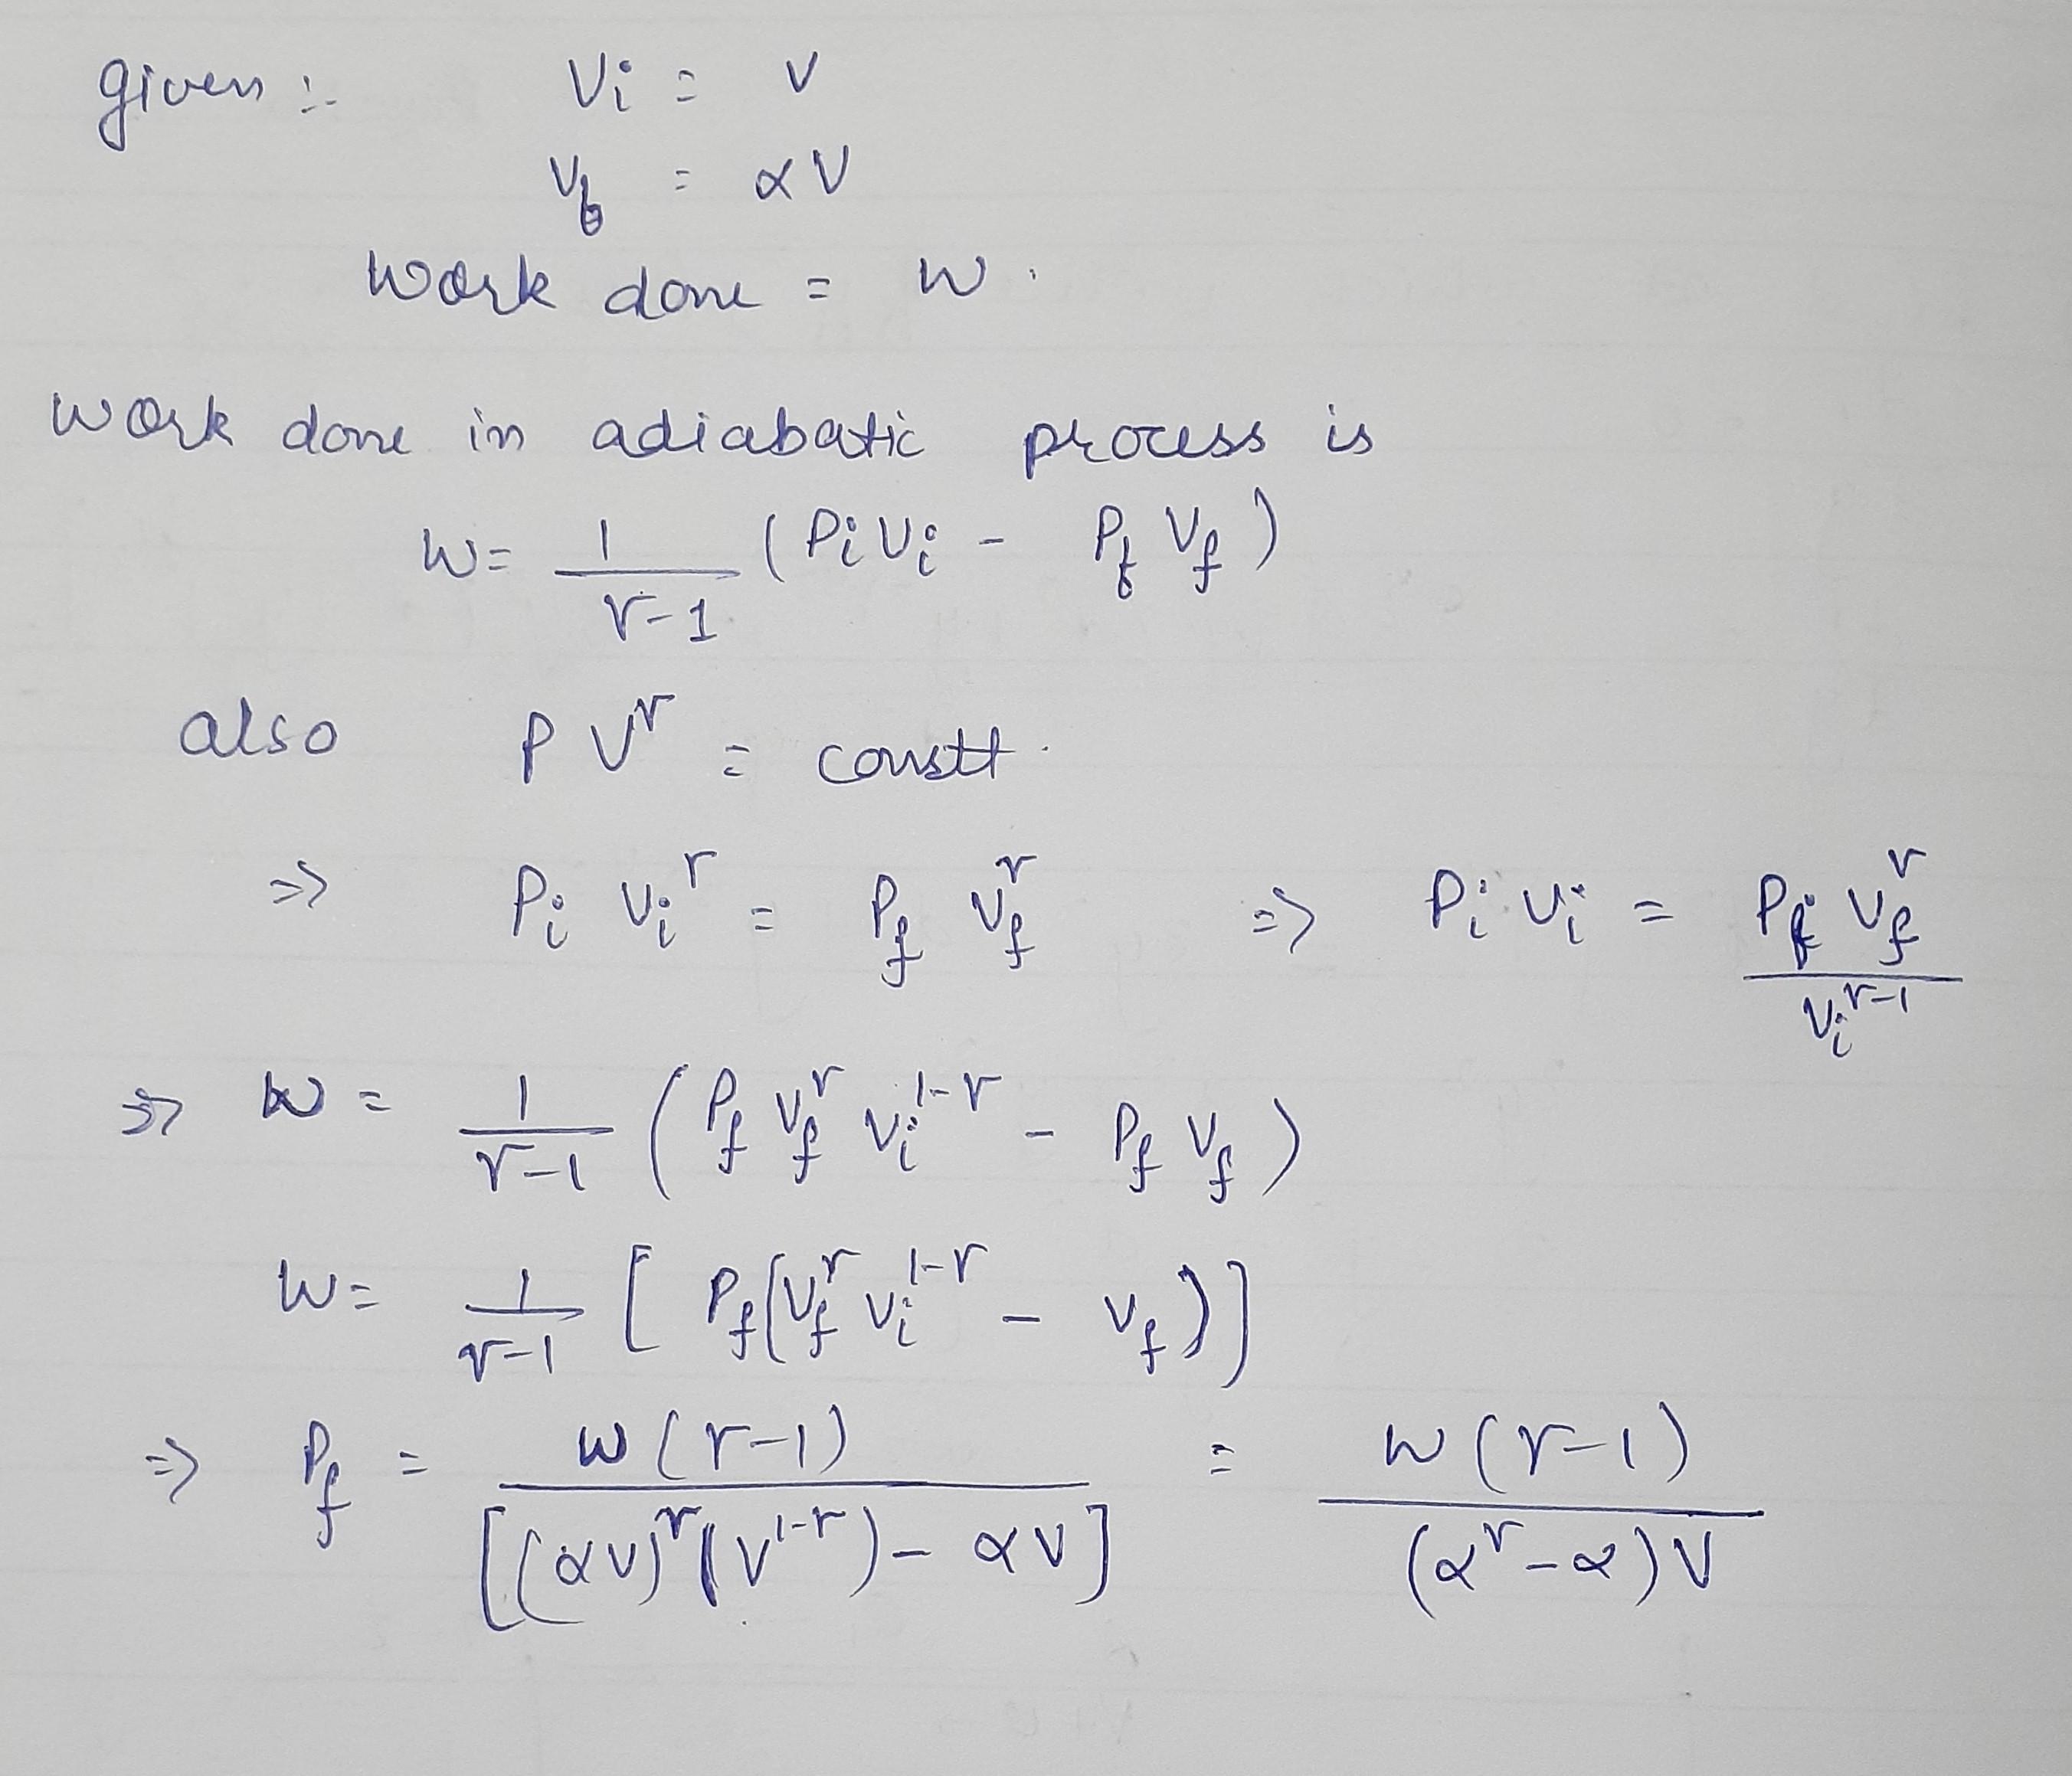 given :- Vi = V
Vf = αV
Work done = W.
Work done in adiabatic process is
W = 1/(r-1) (Pi Vi - Pf Vf)
also P V^r = constt.
=> Pi Vi^r = Pf Vf^r => Pi Vi = Pf Vf^r / Vi^(r-1)
=> W = 1/(r-1) (Pf Vf^r Vi^(1-r) - Pf Vf)
W = 1/(r-1) [Pf (Vf^r Vi^(1-r) - Vf)]
=> Pf = W(r-1) / [(αV)^r (V^(1-r)) - αV] = W(r-1) / (α^r - α)V